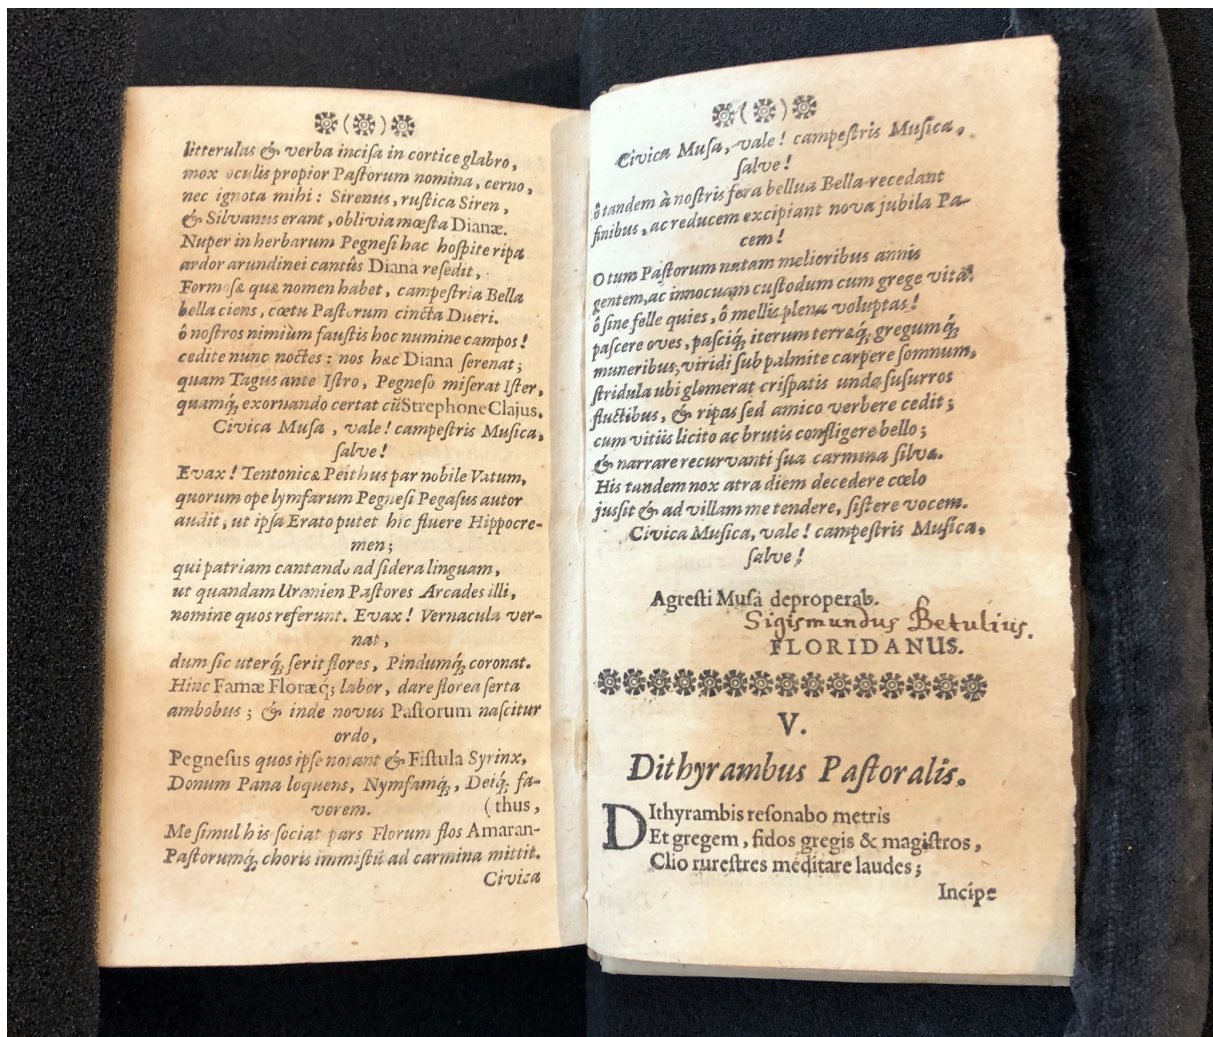 litterulas & verba incisa in cortice glabro,
mox oculis propior Pastorum nomina, cerno,
nec ignota mihi: Sirenus, rustica Siren,
& Silvanus erant, oblivia mœsta Dianæ.
Nuper in herbarum Pegnesi hac hospite ripa
ardor arundinei cantûs Diana resedit,
Formosæ quæ nomen habet, campestria Bella
bella ciens, cœtu Pastorum cincta Dueri.
ô nostros nimiùm faustis hoc numine campos!
cedite nunc noctes: nos hæc Diana serenat;
quam Tagus ante Istro, Pegneso miserat Ister,
quamq́; exornando certat cũ Strephone Clajus.
Civica Musa, vale! campestris Musica,
salve!
Evax! Tentonicæ Peithus par nobile Vatum,
quorum ope lymfarum Pegnesi Pegasus autor
audit, ut ipsa Erato putet hic fluere Hippocre-
men;
qui patriam cantando ad sidera linguam,
ut quandam Uranien Pastores Arcades illi,
nomine quos referunt. Evax! Vernacula ver-
nat,
dum sic uterq́; serit flores, Pindumq́; coronat.
Hinc Famæ Floræq́; labor, dare florea serta
ambobus; & inde novus Pastorum nascitur
ordo,
Pegnesus quos ipse notant & Fistula Syrinx,
Donum Pana loquens, Nymfamq́;, Deiq́; fa-
vorem. (thus,
Me simul his sociat pars Florum flos Amaran-
Pastorumq́; choris immistũ ad carmina mittit.
Civica
Civica Musa, vale! campestris Musica,
salve!
ô tandem à nostris fera bellua Bella recedant
finibus, ac reducem excipiant nova jubila Pa-
cem!
O tum Pastorum natam melioribus annis
gentem, ac innocuam custodum cum grege vitã!
ô sine felle quies, ô mellis plena voluptas!
pascere oves, pasciq́; iterum terræq́; gregumq́;
muneribus, viridi sub palmite carpere somnum,
stridula ubi glomerat crispatis unda susurros
fluctibus, & ripas sed amico verbere cedit;
cum vitiis licito ac brutis confligere bello;
& narrare recurvanti sua carmina silvæ.
His tandem nox atra diem decedere cœlo
jussit & ad villam me tendere, sistere vocem.
Civica Musica, vale! campestris Musica,
salve!
Agresti Musâ deproperab.
Sigismundus Betulius.
FLORIDANUS.
V.
Dithyrambus Pastoralis.
DIthyrambis resonabo metris
Et gregem, fidos gregis & magistros,
Clio rurestres meditare laudes;
Incipe